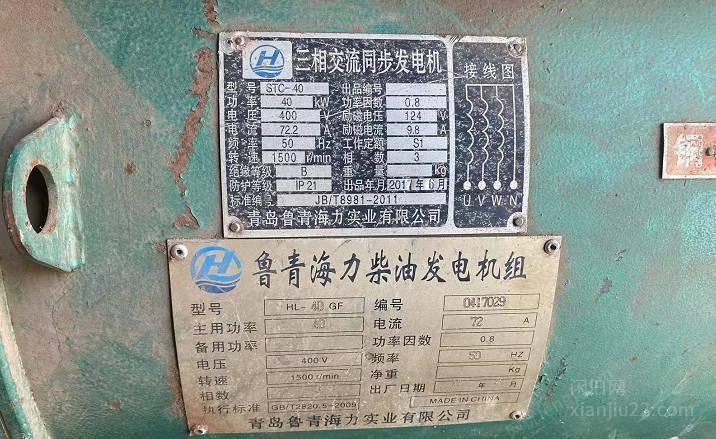 三相交流同步发电机
接线图
型号 STC-40 出品编号
功率 40 kW 功率因数 0.8
电压 400 V 励磁电压 124 V
电流 72.2 A 励磁电流 9.8 A
频率 50 Hz 工作定额 S1
转速 1500 r/min 相数 3
绝缘等级 B 重量 kg
防护等级 IP21 出品年月 2017年6月
标准编号 JB/T8981-2011
U V W N
青岛鲁青海力实业有限公司
鲁青海力柴油发电机组
型号 HL-40 GF 编号 0417029
主用功率 40 电流 72 A
备用功率 功率因数 0.8
电压 400V 频率 50 HZ
转速 1500r/min 净重 Kg
相数 出厂日期 年 月
执行标准 GB/T2820.5-2009 MADE IN CHINA
青岛鲁青海力实业有限公司
闲旧网
xianjiu23.com